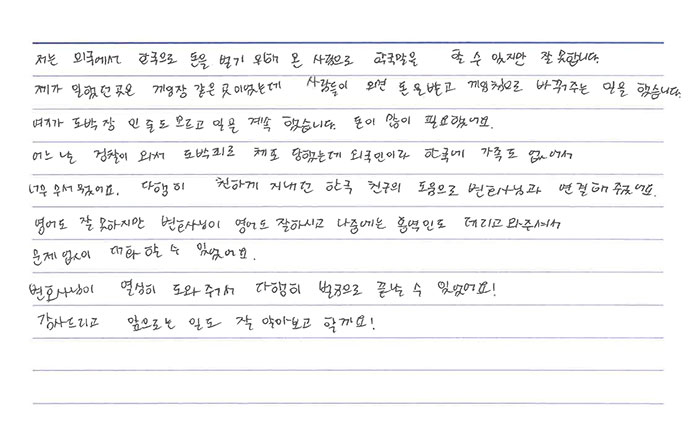 저는 외국에서 한국으로 돈을 벌기 위해 온 사람으로 한국말을 할 수 있지만 잘 못합니다.
제가 일했던 곳은 게임장 같은 곳이었는데 사람들이 오면 돈을 받고 게임칩으로 바꿔주는 일을 했습니다.
여기가 도박장 인줄도 모르고 일을 계속 했습니다. 돈이 많이 필요했어요.
어느 날 경찰이 와서 도박죄로 체포 당했는데 외국인이라 한국에 가족도 없어서
너무 무서웠어요. 다행히 친하게 지내던 한국 친구의 도움으로 변호사님과 연결해 주었어요.
영어도 잘 못하지만 변호사님이 영어도 잘하시고 나중에는 통역인도 데리고 와주셔서
문제 없이 대화 할 수 있었어요.
변호사님이 열심히 도와주셔서 다행히 벌금으로 끝날 수 있었어요!
감사드리고 앞으로는 일도 잘 알아보고 할까요!